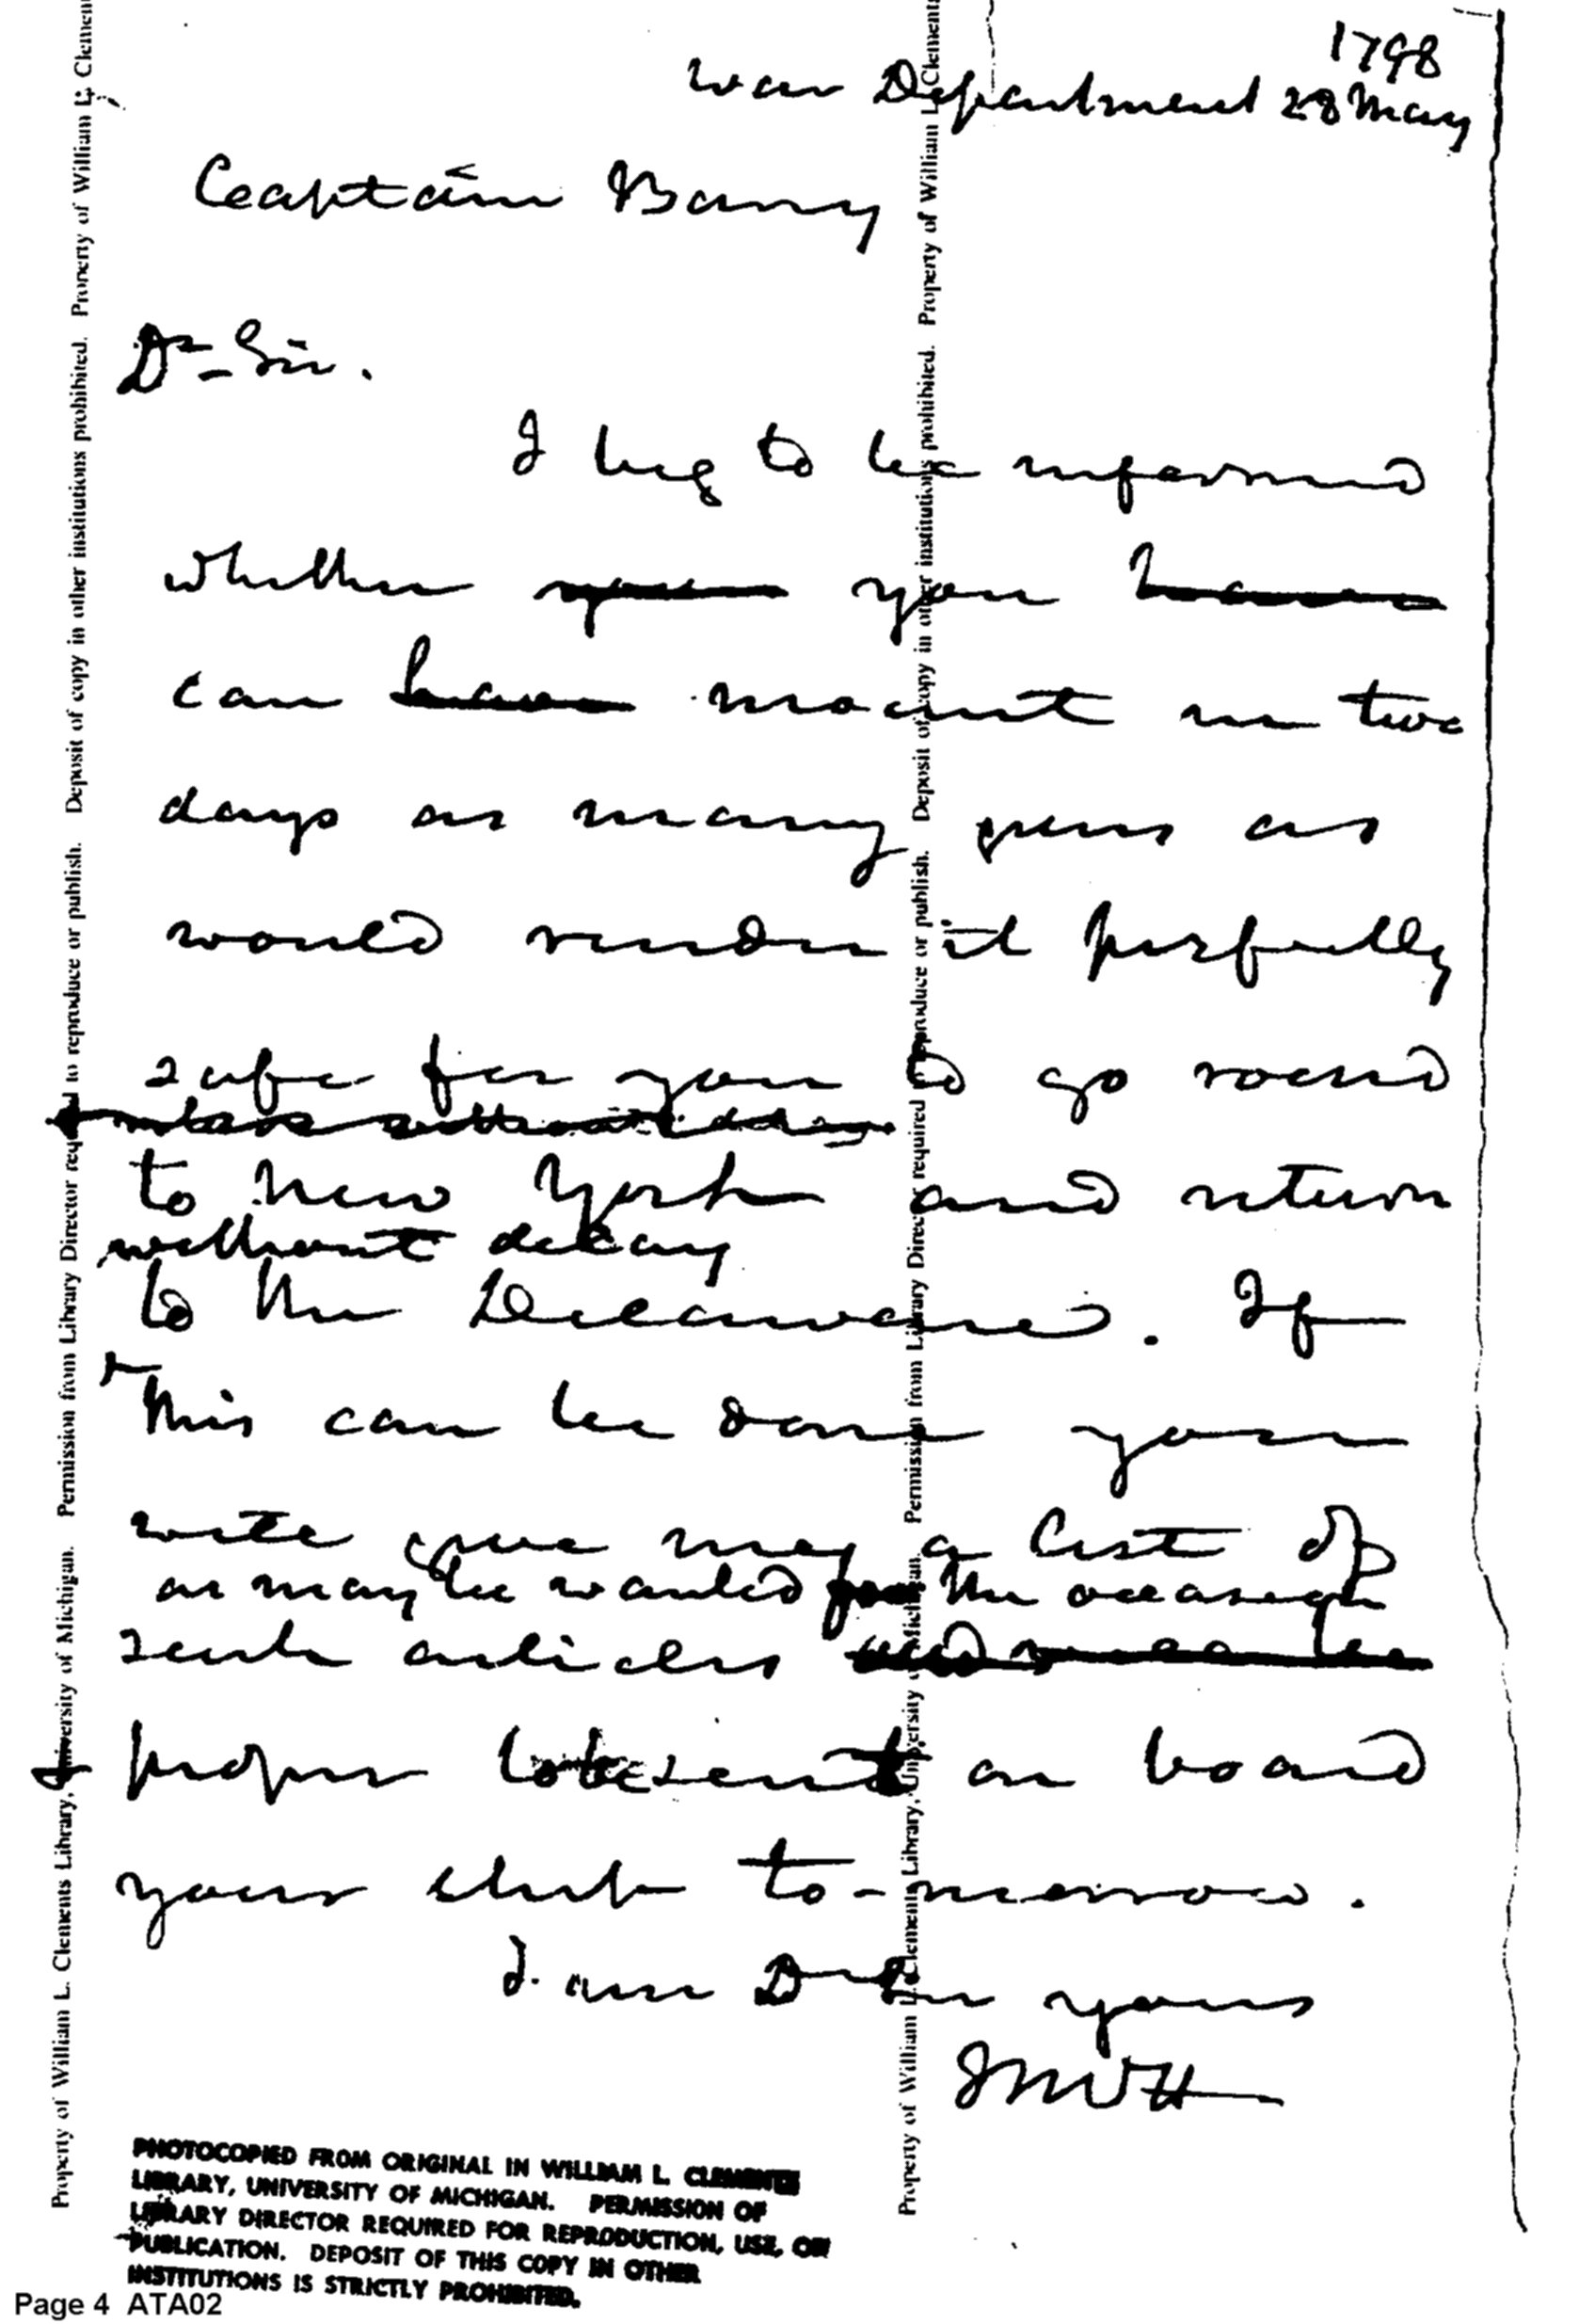 1798
War Department 28 May
Captain Barry
Dr Sir.
I beg to be informed
whether you
can have mount in two
days as many guns as
would render it perfectly
safe for you to go round
to New York and return
without delay
to the Delaware. If
This can be done you
will give me a list of
as may be wanted for the occasion
such articles
proper to be sent on board
your ship to-morrow.
I am Dr Sir yours
JMcH
PHOTOCOPIED FROM ORIGINAL IN WILLIAM L. CLEMENTS
LIBRARY, UNIVERSITY OF MICHIGAN. PERMISSION OF
LIBRARY DIRECTOR REQUIRED FOR REPRODUCTION, USE, OR
PUBLICATION. DEPOSIT OF THIS COPY IN OTHER
INSTITUTIONS IS STRICTLY PROHIBITED.
Page 4 ATA02
Property of William L. Clements Library, University of Michigan. Permission from Library Director required to reproduce or publish. Deposit of copy in other institutions prohibited. Property of William L. Clement
Property of William L. Clements Library, University of Michigan. Permission from Library Director required to reproduce or publish. Deposit of copy in other institutions prohibited. Property of William L. Clements